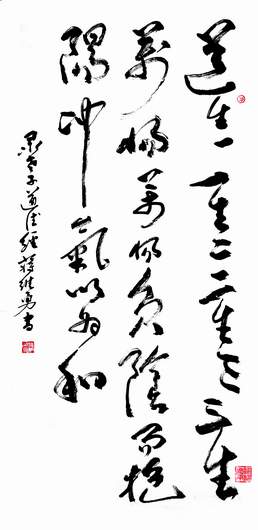 道生一一生二二生三三生
萬物萬物負陰而抱
陽冲氣以為和
录老子道德經維勇書